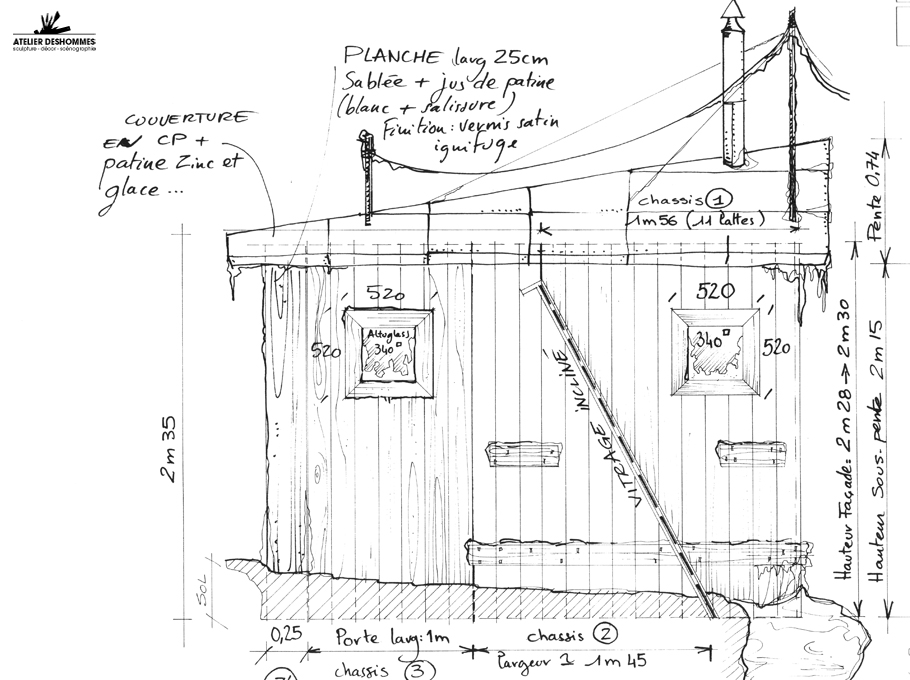 ATELIER DESHOMMES
sculpture - décor - scénographie
PLANCHE larg 25cm
Sablée + jus de patine
(blanc + salissure)
Finition : vernis satin
ignifuge
COUVERTURE
EN CP +
patine Zinc et
glace ...
chassis 1
1m56 (11 lattes)
Pente 0,74
520
520
Altuglass
340
520
520
340
VITRAGE INCLINÉ
2m35
Hauteur Façade = 2m28 → 2m30
Hauteur Sous-pente 2m15
SOL
0,25
Porte larg: 1m
chassis 3
chassis 2
largeur 1m45